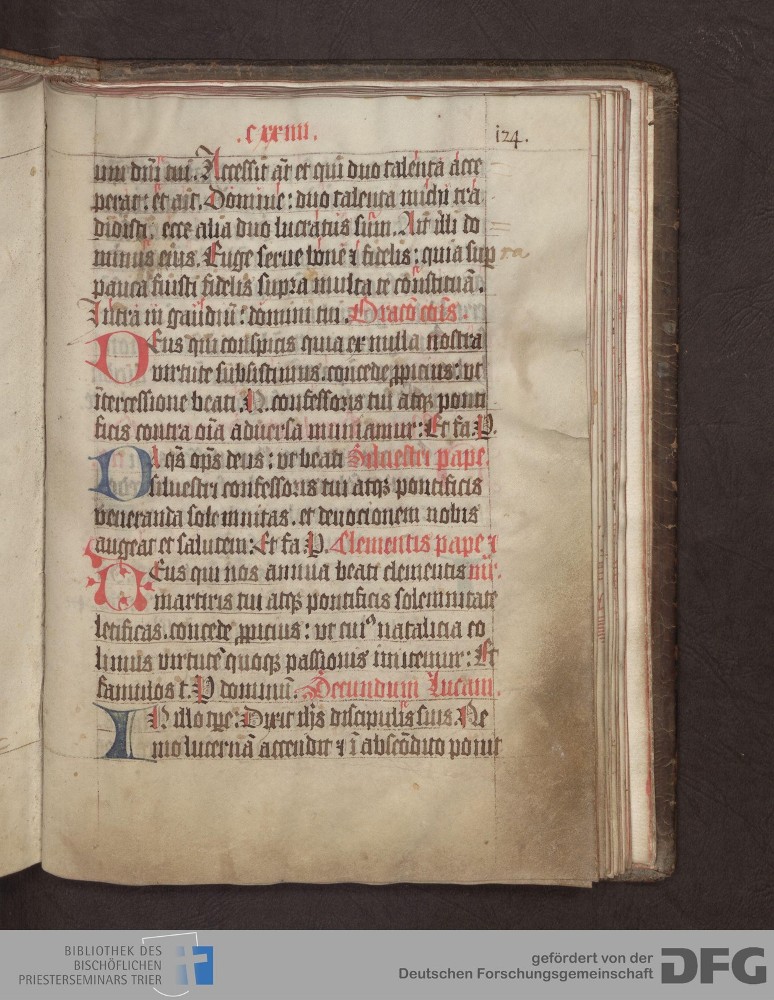 .cxxiiii. 124.
um dn̄i tui. Accessit aūt et qui duo talenta acce
perat: et ait. Domine: duo talenta michi tra
didisti. ecce alia duo lucratus sum. Ait illi do
minus eius. Euge serue bone ⁊ fidelis: quia sup ra
pauca fuisti fidelis supra multa te cōstituā.
Intra in gaudiū: domini tui. Oracō cōis.
Deus qui conspicis quia ex nulla nostra
virtute subsistimus. concede ꝓpicius: vt
ītercessione beati .N. confessoris tui atqꝫ ponti
ficis contra oīa aduersa muniamur: Et fa. P.
Da qs̄ op̄s deus: vt beati Siluestri pape.
siluestri confessoris tui atqꝫ pontificis
veneranda solemnitas. et deuocionem nobis
augeat et salutem: Et fa. P. Clementis pape ⁊
Deus qui nos annua beati clementis mr̄.
martiris tui atqꝫ pontificis solemnitate
letificas. concede ꝓpicius: vt cuiꝰ natalicia co
limus virtutē quoqꝫ passionis imitemur: Et
famulos t. P dominū. Secundum Lucam.
IN illo tp̄e: Dixit ih̄s discipulis suis. Ne
mo lucernā accendit ⁊ ī abscōdito ponit
BIBLIOTHEK DES
BISCHÖFLICHEN
PRIESTERSEMINARS TRIER
gefördert von der
Deutschen Forschungsgemeinschaft DFG